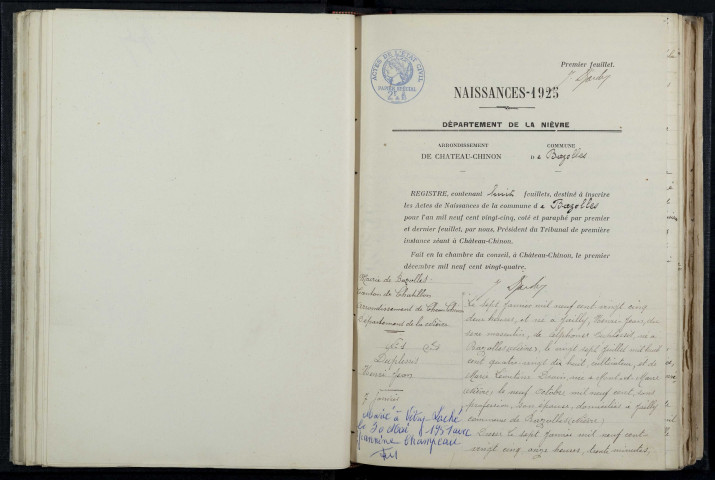 Premier feuillet.
ACTES DE L'ETAT CIVIL
PAPIER SPECIAL
NAISSANCES-1925
DÉPARTEMENT DE LA NIÈVRE
ARRONDISSEMENT
DE CHATEAU-CHINON
COMMUNE
de Bazolles
REGISTRE, contenant huit feuillets, destiné à inscrire
les Actes de Naissances de la commune de Bazolles
pour l'an mil neuf cent vingt-cinq, coté et paraphé par premier
et dernier feuillet, par nous, Président du Tribunal de première
instance séant à Château-Chinon.
Fait en la chambre du conseil, à Château-Chinon, le premier
décembre mil neuf cent vingt-quatre.
Mairie de Bazolles
Canton de Châtillon
arrondissement de Château-Chinon
Département de la Nièvre
Duplessis
Henri Jean
7 janvier
Marié à Vitry-Laché
le 30 Mai 1951 avec
Jeannine Champeau
Le sept janvier mil neuf cent vingt cinq
deux heures, est né à Pailly, Henri-Jean, du
sexe masculin, de Alphonse Duplessis, né à
Bazolles (Nièvre), le vingt sept juillet mil huit
cent quatre vingt dix huit, cultivateur, et de
Marie Léontine née à Mont-et-Marré
(Nièvre), le neuf octobre mil neuf cent, sans
profession, son épouse, domiciliés à Pailly
commune de Bazolles (Nièvre).
Dressé le sept janvier mil neuf cent
vingt cinq onze heures, trente minutes,